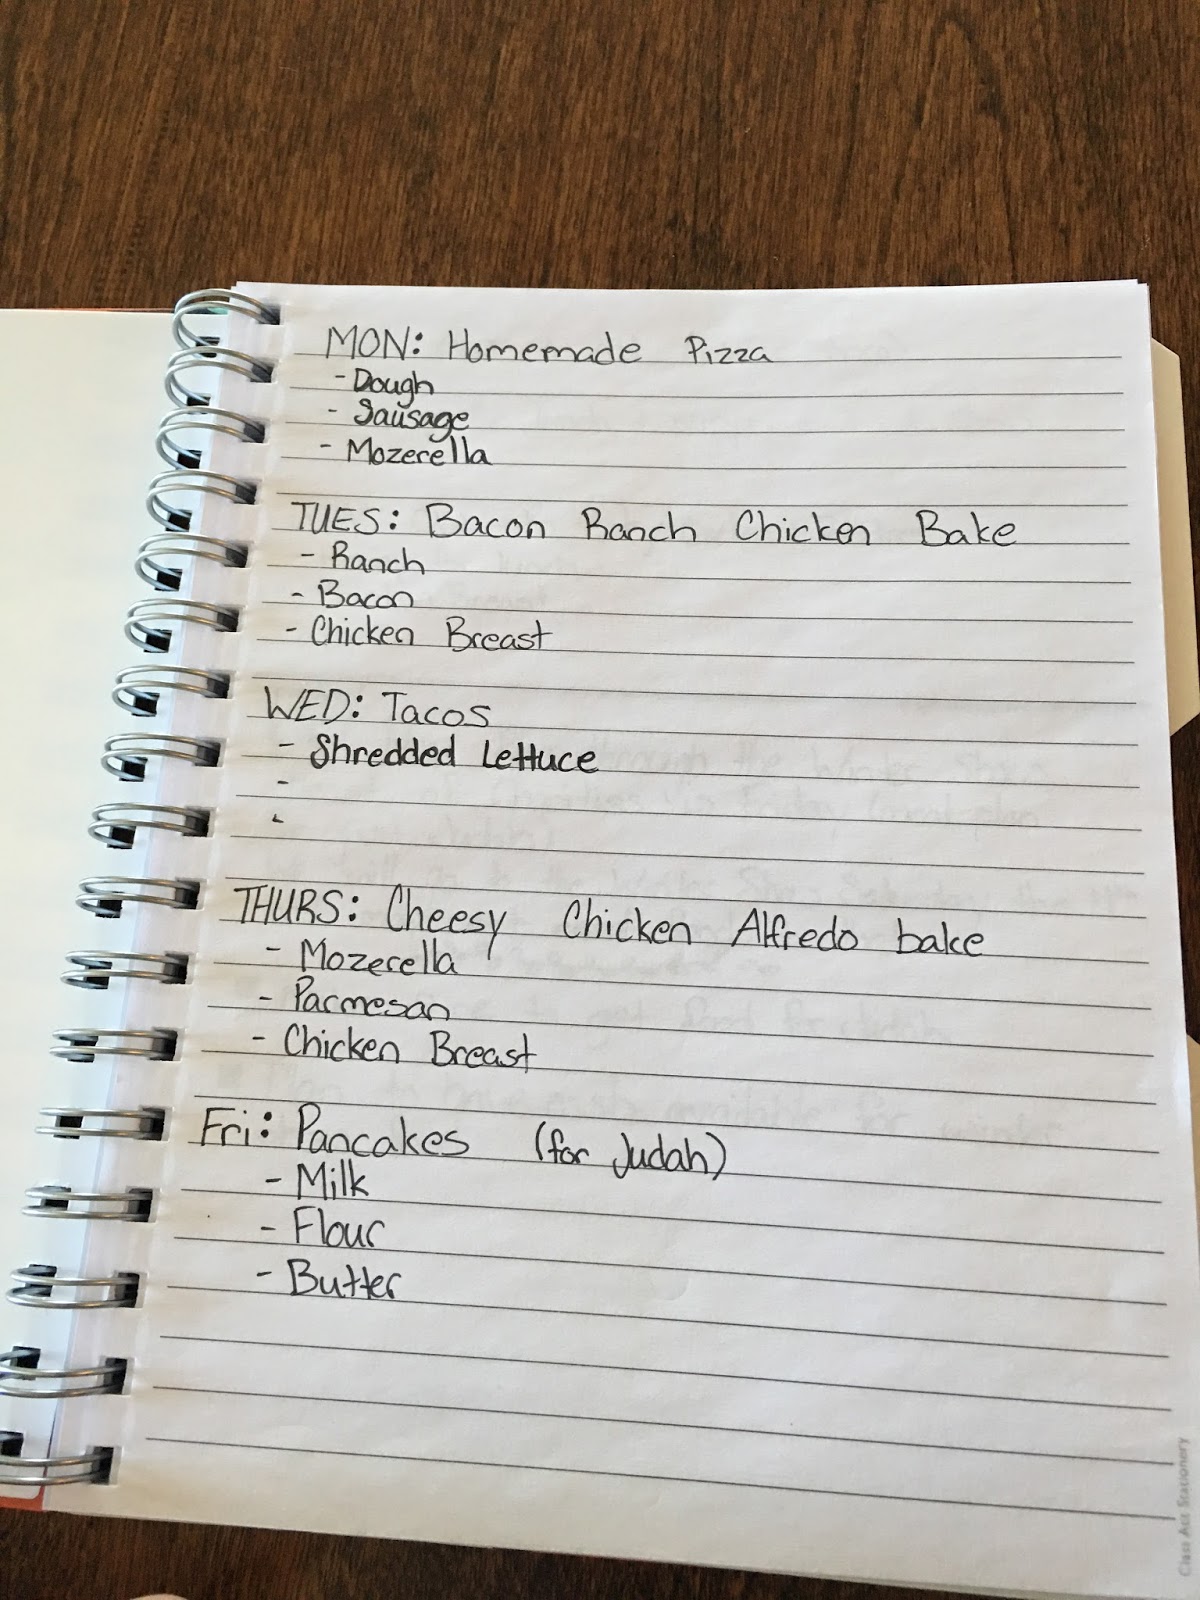 MON: Homemade Pizza
- Dough
- Sausage
- Mozerella
TUES: Bacon Ranch Chicken Bake
- Ranch
- Bacon
- Chicken Breast
WED: Tacos
- Shredded Lettuce
-
-
THURS: Cheesy Chicken Alfredo bake
- Mozerella
- Parmesan
- Chicken Breast
Fri: Pancakes (for Judah)
- Milk
- Flour
- Butter
Class Act Stationery